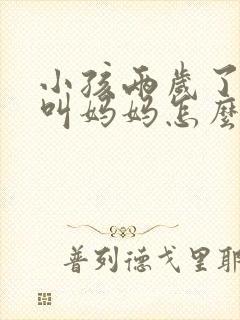 小孩两歲了
叫妈妈怎麼
普列德戈里耶